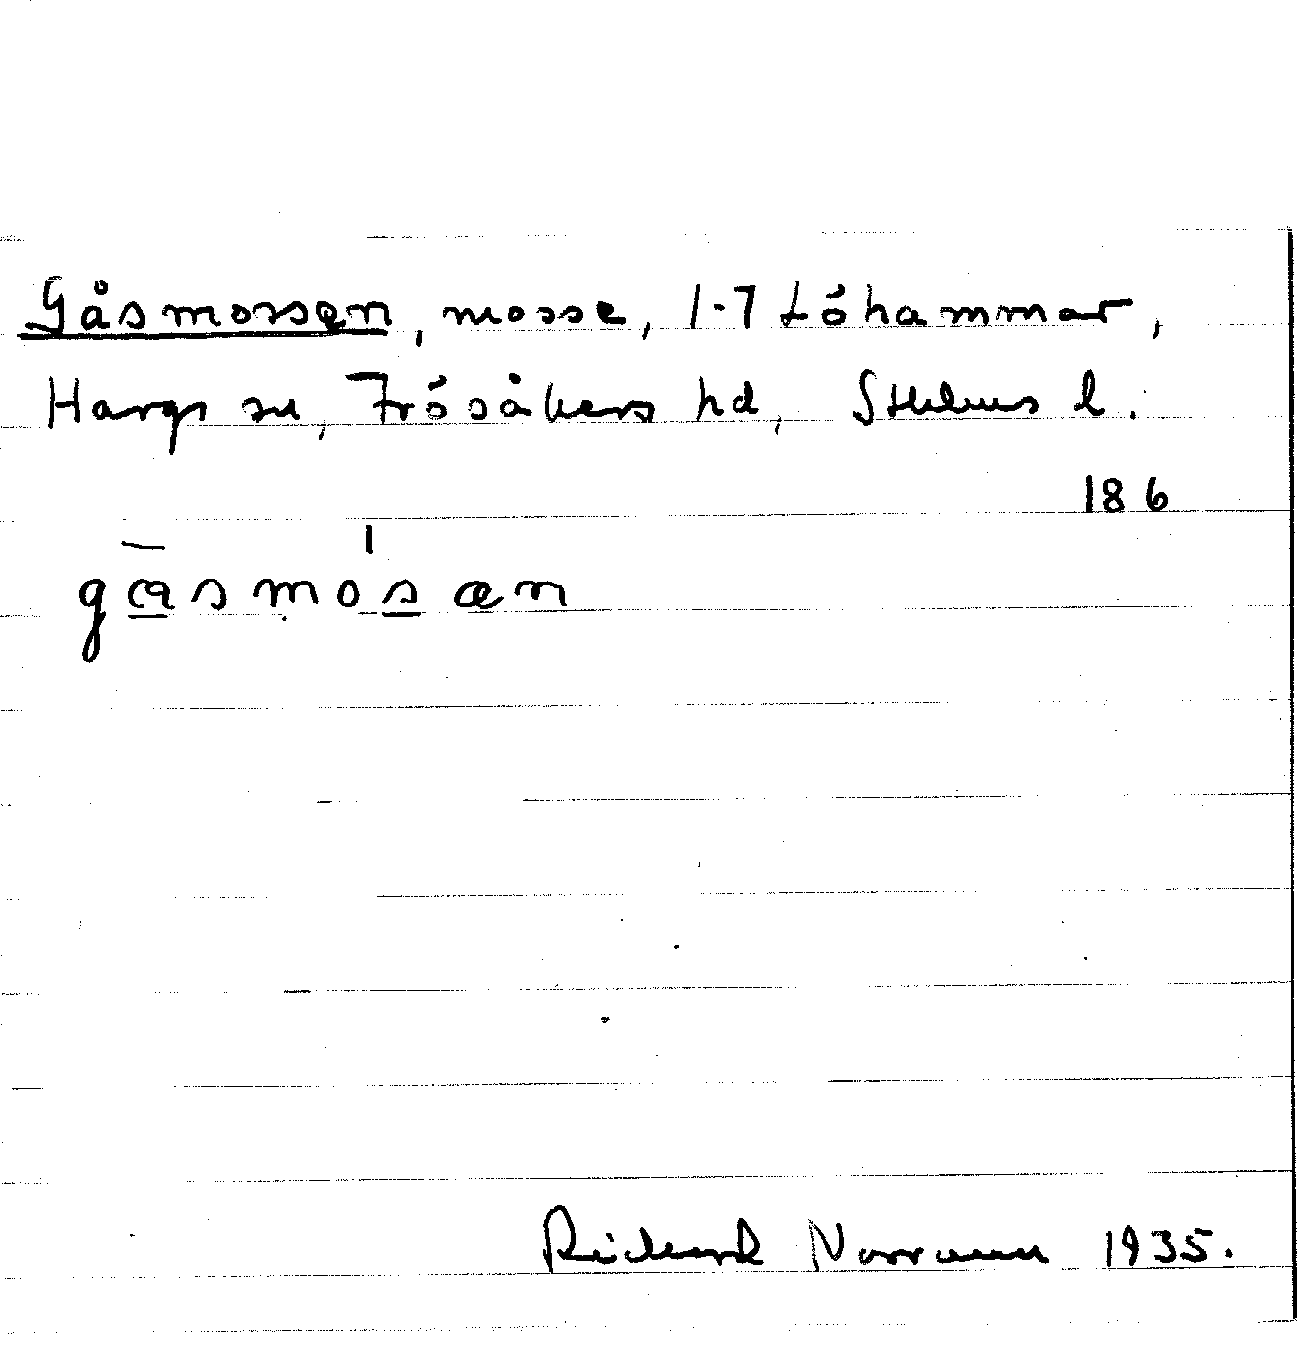 Gåsmossen, mosse, 1-7 Löhammar,
Hargs sn, Frösåkers hd, Sthlms l.
186
gåsmosæn
Rickard Norrman 1935.